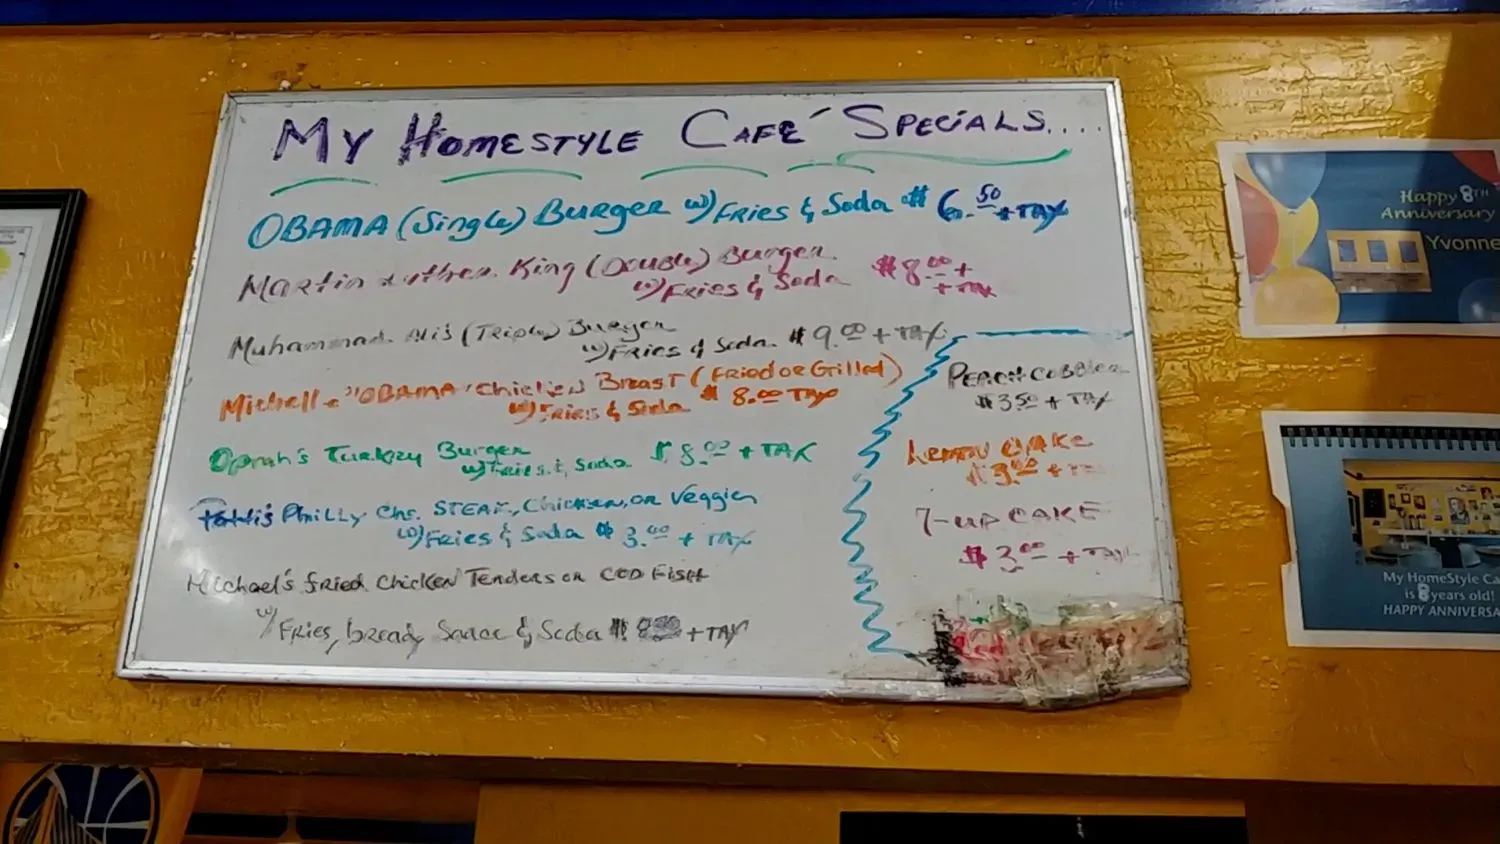 My Homestyle Café Specials....
OBAMA (Single) Burger w/ Fries & Soda $6.50 + TAX
Martin Luther King (Double) Burger
w/ Fries & Soda $8.00 + TAX
Muhammad Ali's (Triple) Burger
w/ Fries & Soda $9.00 + TAX
Michelle "OBAMA" Chicken Breast (Fried or Grilled)
w/ Fries & Soda $8.00 Tax
Oprah's Turkey Burger
w/ Fries & Soda $8.00 + TAX
Philly Chs. STEAK, Chicken, or Veggies
w/ Fries & Soda $3.00 + TAX
Michael's Fried Chicken Tenders or COD FISH
w/ Fries, bread, Sauce & Soda $ + TAX
PEACH COBBLER
$3.50 + TAX
Lemon CAKE
$3.00 + TAX
7-UP CAKE
$3.00 + TAX
Happy 8TH
Anniversary
Yvonne
My HomeStyle Ca
is 8 years old!
HAPPY ANNIVERSA